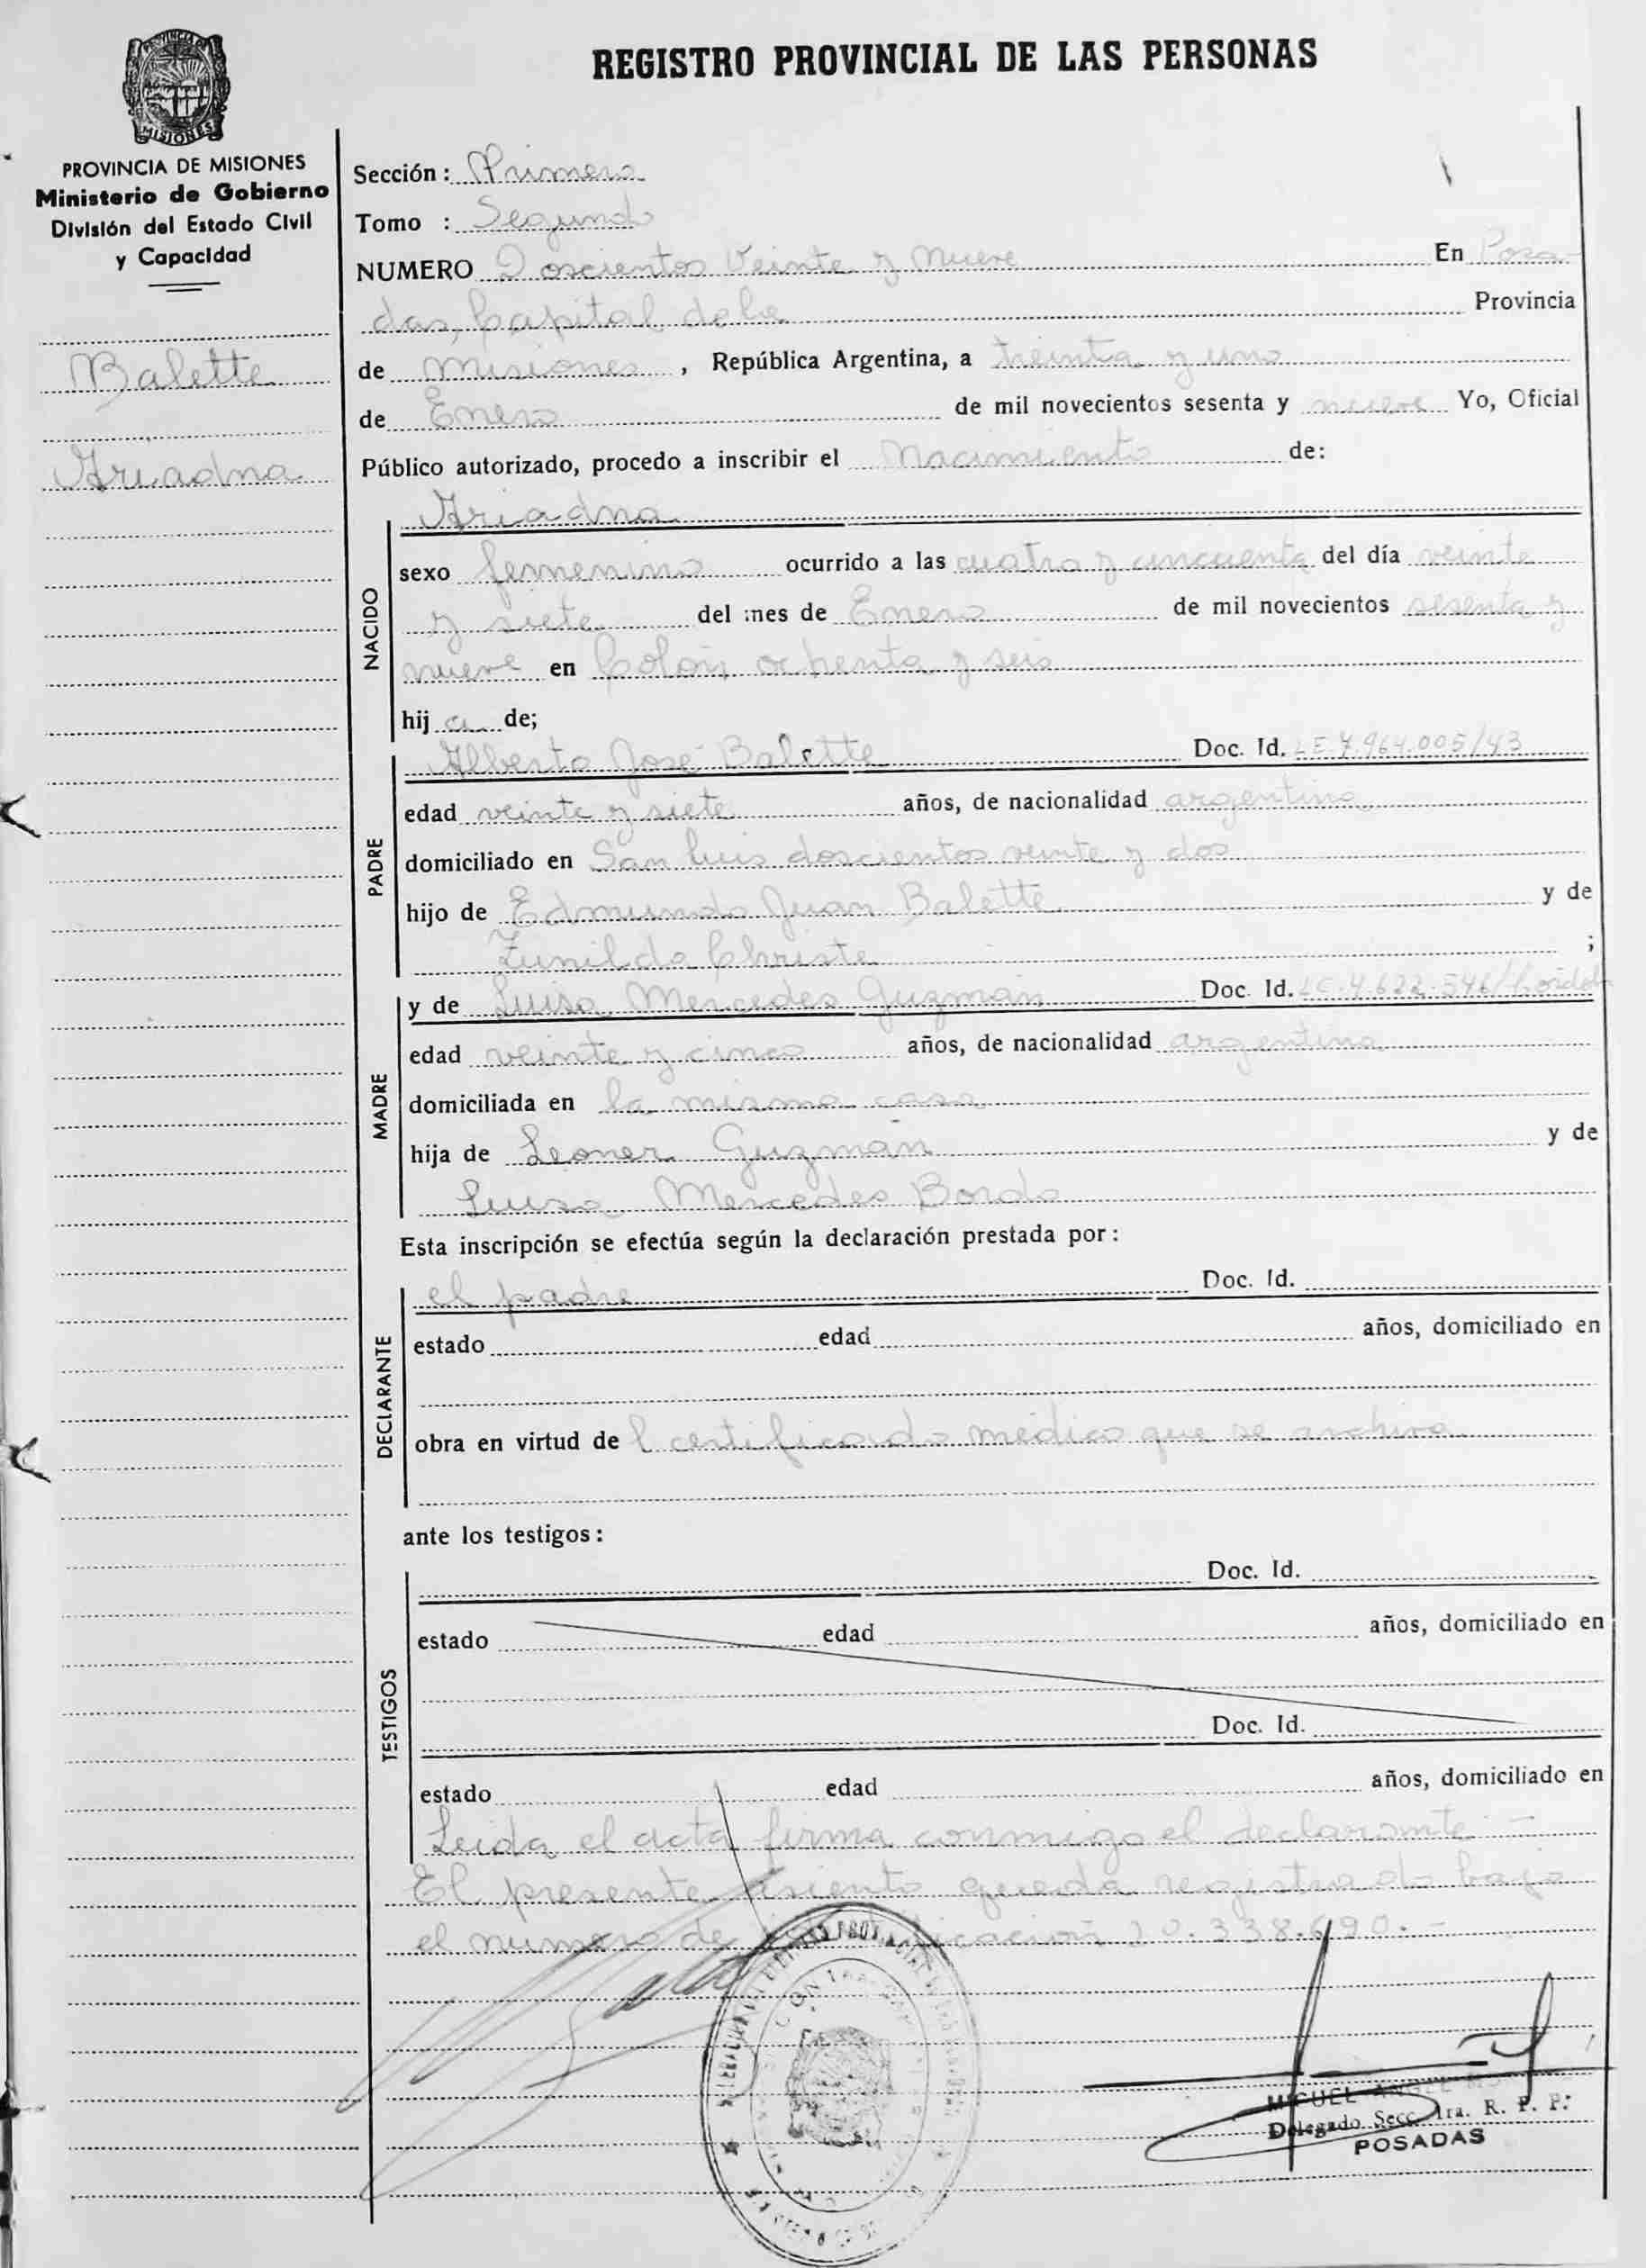 REGISTRO PROVINCIAL DE LAS PERSONAS
MISIONES
PROVINCIA DE MISIONES
Ministerio de Gobierno
División del Estado Civil
y Capacidad
Balette
Ariadna
Sección: Primera
Tomo : Segundo
NUMERO Doscientos Veinte y nueve En Posa-
das, Capital de la Provincia
de Misiones, República Argentina, a treinta y uno
de Enero de mil novecientos sesenta y nueve Yo, Oficial
Público autorizado, procedo a inscribir el Nacimiento de:
NACIDO
Ariadna
sexo femenino ocurrido a las cuatro y cincuenta del día veinte
y siete del mes de Enero de mil novecientos sesenta y
nueve en Colón ochenta y seis
hija de;
PADRE
Alberto José Balette Doc. Id. LE 7.964.005/43
edad veinte y siete años, de nacionalidad argentina
domiciliado en San Luis doscientos veinte y dos
hijo de Edmundo Juan Balette y de
Zunilda Christe ;
MADRE
y de Luisa Mercedes Guzmán Doc. Id. LC. 4.622.546/Córdoba
edad veinte y cinco años, de nacionalidad argentina
domiciliada en la misma casa
hija de Leoner Guzmán y de
Luisa Mercedes Bordo
Esta inscripción se efectúa según la declaración prestada por:
DECLARANTE
el padre Doc. Id.
estado edad años, domiciliado en
obra en virtud del certificado médico que se archiva
ante los testigos:
TESTIGOS
Doc. Id.
estado edad años, domiciliado en
Doc. Id.
estado edad años, domiciliado en
Leida el acta firma conmigo el declarante -
El presente asiento queda registrado bajo
el número de identificación 20.338.690.-
MIGUEL ANGEL
Delegado Secc. 1ra. R. P. P.
POSADAS